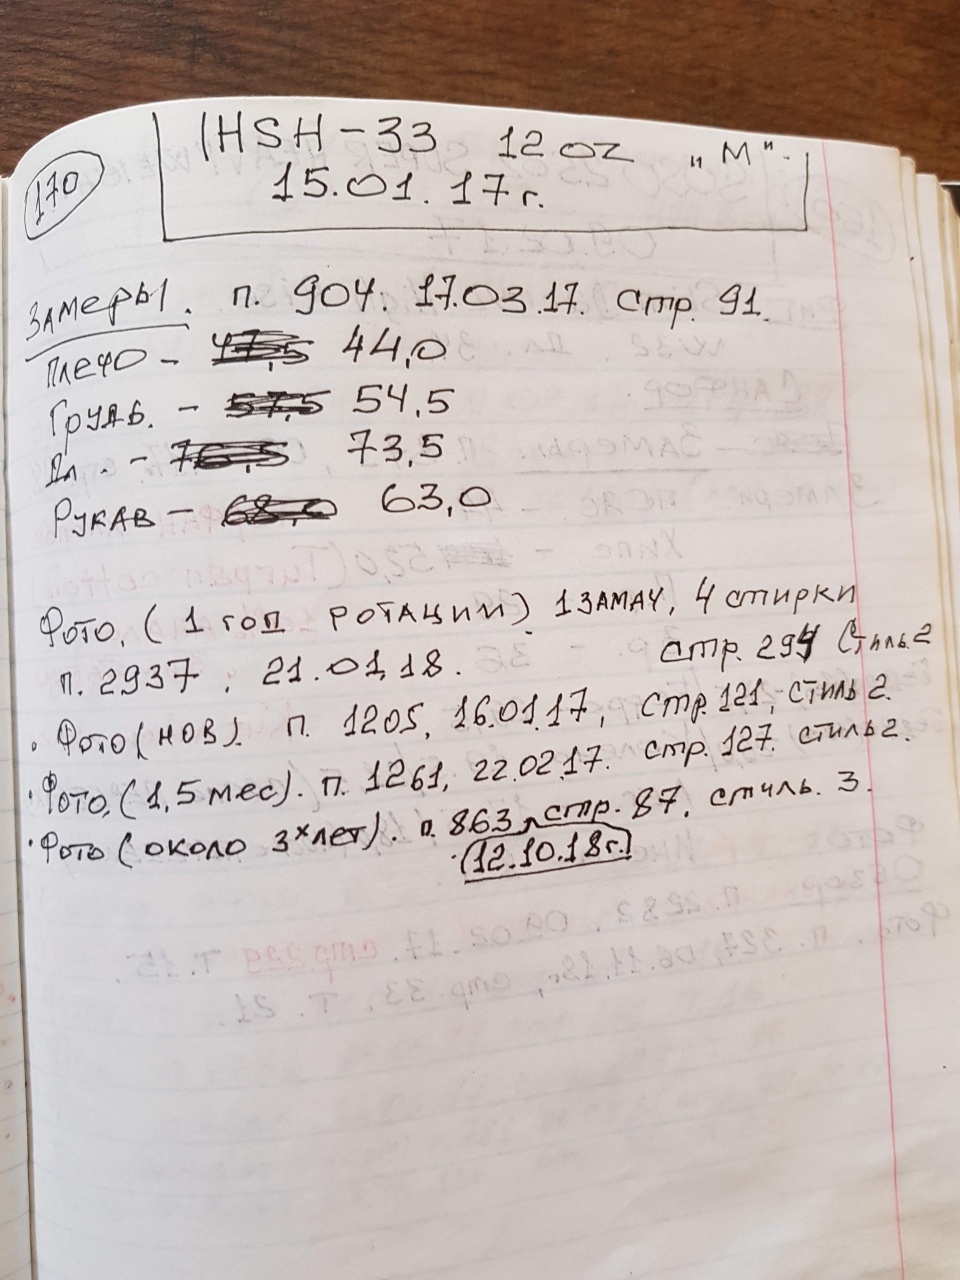 170
IHSH-33 12oz "M".
15.01.17г.
Замеры. п. 904. 17.03.17. стр. 91.
Плечо - 47,5 44,0
Грудь. - 57,5 54,5
Дл. - 76,5 73,5
Рукав - 68,0 63,0
Фото, (1 год ротации) 1 замач, 4 стирки
п. 2937, 21.01.18. стр. 294 Стиль 2
· Фото (нов). п. 1205, 16.01.17, стр. 121, стиль 2.
· Фото, (1,5 мес). п. 1261, 22.02.17. стр. 127. стиль 2.
· Фото (около 3х лет). п. 863, стр. 87, стиль. 3.
(12.10.18г.)